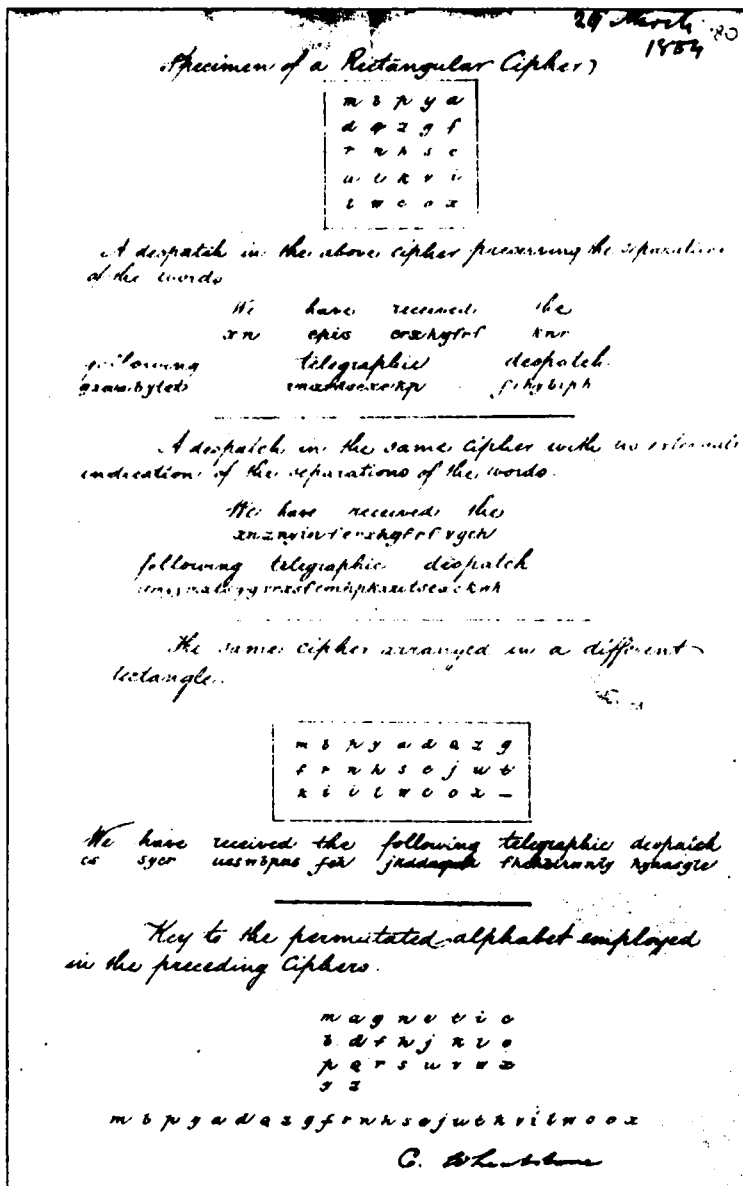 26 March
1854
80
Specimen of a Rectangular Cipher
m b p y a
d q z g f
r n h s e
u t k v i
l w c o x
A despatch in the above cipher preserving the separation
of the words
We have received the
xn epis knr
following telegraphic despatch
A despatch in the same cipher with no external
indication of the separations of the words.
We have received the
following telegraphic despatch
The same cipher arranged in a different
rectangle.
m b p y a d q z g
f r n h s e j u t
k v i l w c o x –
We have received the following telegraphic despatch
cs sycr
Key to the permutated alphabet employed
in the preceding Ciphers.
m a g n e t i c
b d f h j k l o
p q r s u v w x
y z
m b p y a d q z g f r n h s e j u t k v i l w c o x
C. Wheatstone